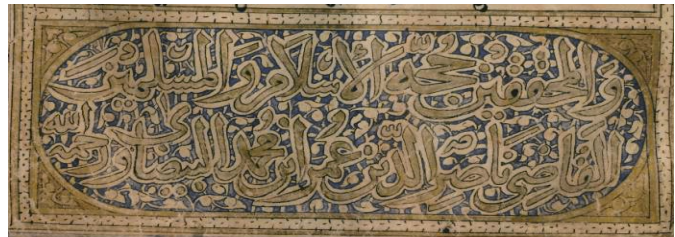 والمحققين حجة الاسلام والمسلمين
القاضى ناصر الدين عمر ابن محمد البيضاوى رحمه الله